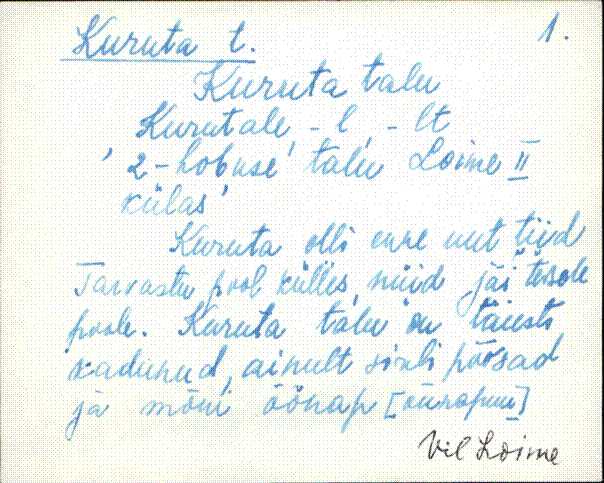 Kuruta t. 1.
Kuruta talu
Kurutale -l, -lt
'2-hobuse' talu Loime II
külas'
Kuruta olli enne uut tiid
Tarvastu pool külles, nüid jäi tõsele
poole. Kuruta talu on täiesti
kadunud, ainult sireli põõsad
ja mõni õõnap [õunapuu]
Vil Loime